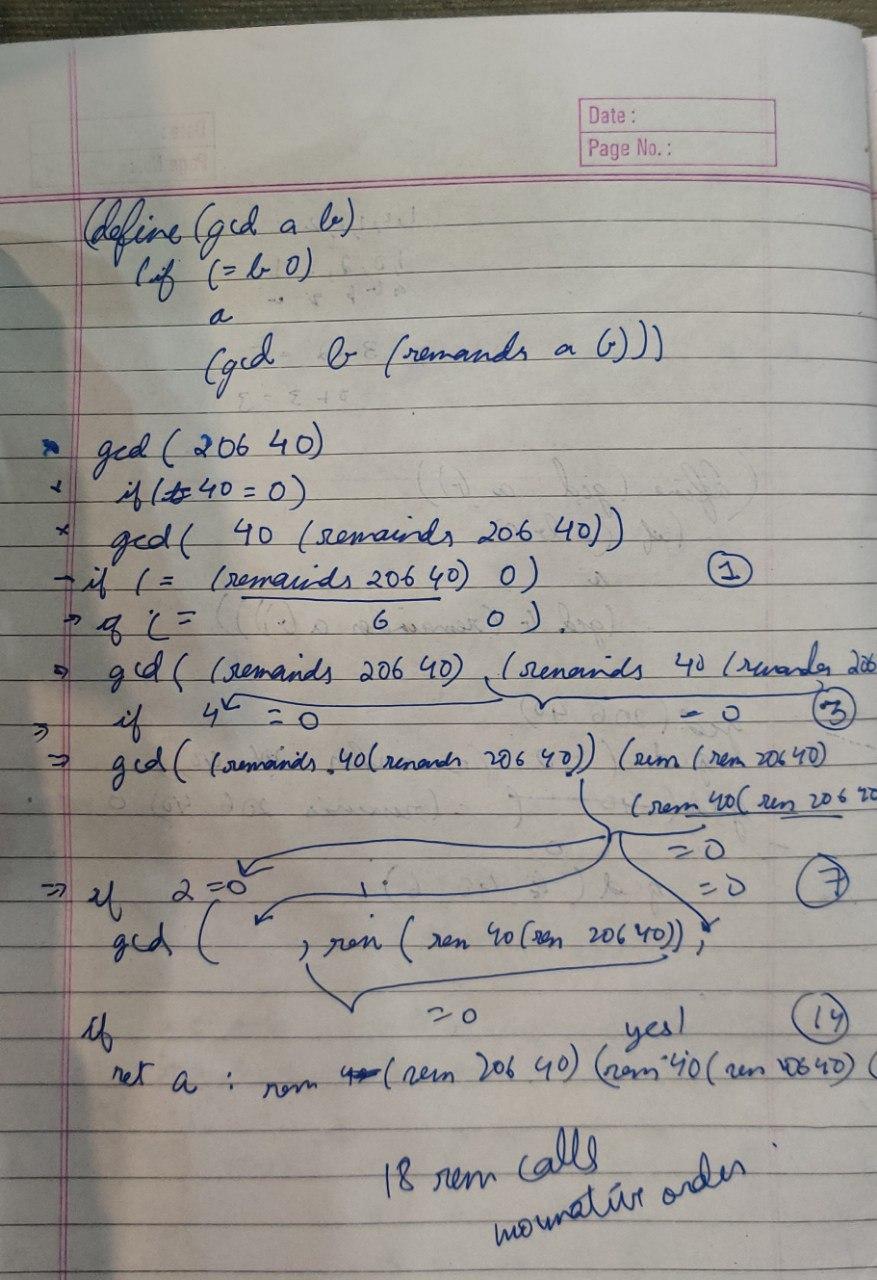 Date :
Page No. :
(define (gcd a b)
(if (= b 0)
a
(gcd b (remainds a b)))
gcd ( 206 40)
if ( 40 = 0)
gcd ( 40 (remainds 206 40))
- if ( = (remainds 206 40) 0) ①
→ if (= 6 0)
⇒ gcd ( (remainds 206 40) , (remainds 40 (remainder 206
⇒ if 4 = 0 = 0 ③
⇒ gcd ( (remainds 40 (remainds 206 40)) (rem (rem 206 40)
(rem 40 ( rem 206 40
= 0
⇒ if 2 = 0 = 0 ⑦
gcd ( , rem ( rem 40 (rem 206 40)) ,
= 0
if yes! ⑭
ret a : rem (rem 206 40) (rem 40 ( rem 206 40) (
18 rem calls
order